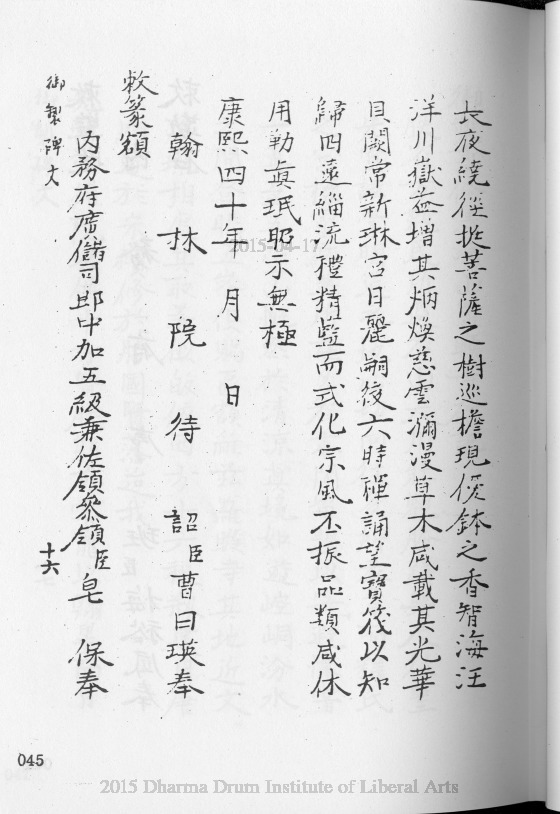 長夜繞徑挺菩薩之樹巡檐現優鉢之香智海汪
洋川嶽益增其炳煥慈雲瀰漫草木咸載其光華
貝闕常新琳宮日麗嗣後六時禪誦望寶筏以知
歸四遠緇流禮精藍而式化宗風丕振品類咸休
用勒貞珉昭示無極
康熙四十年 月 日
翰 林 院 待 詔臣曹曰瑛奉
敕篆額
內務府廣儲司郎中加五級兼佐領參領臣皂 保奉
御製碑文
十六
045
2015-04-17
2015 Dharma Drum Institute of Liberal Arts